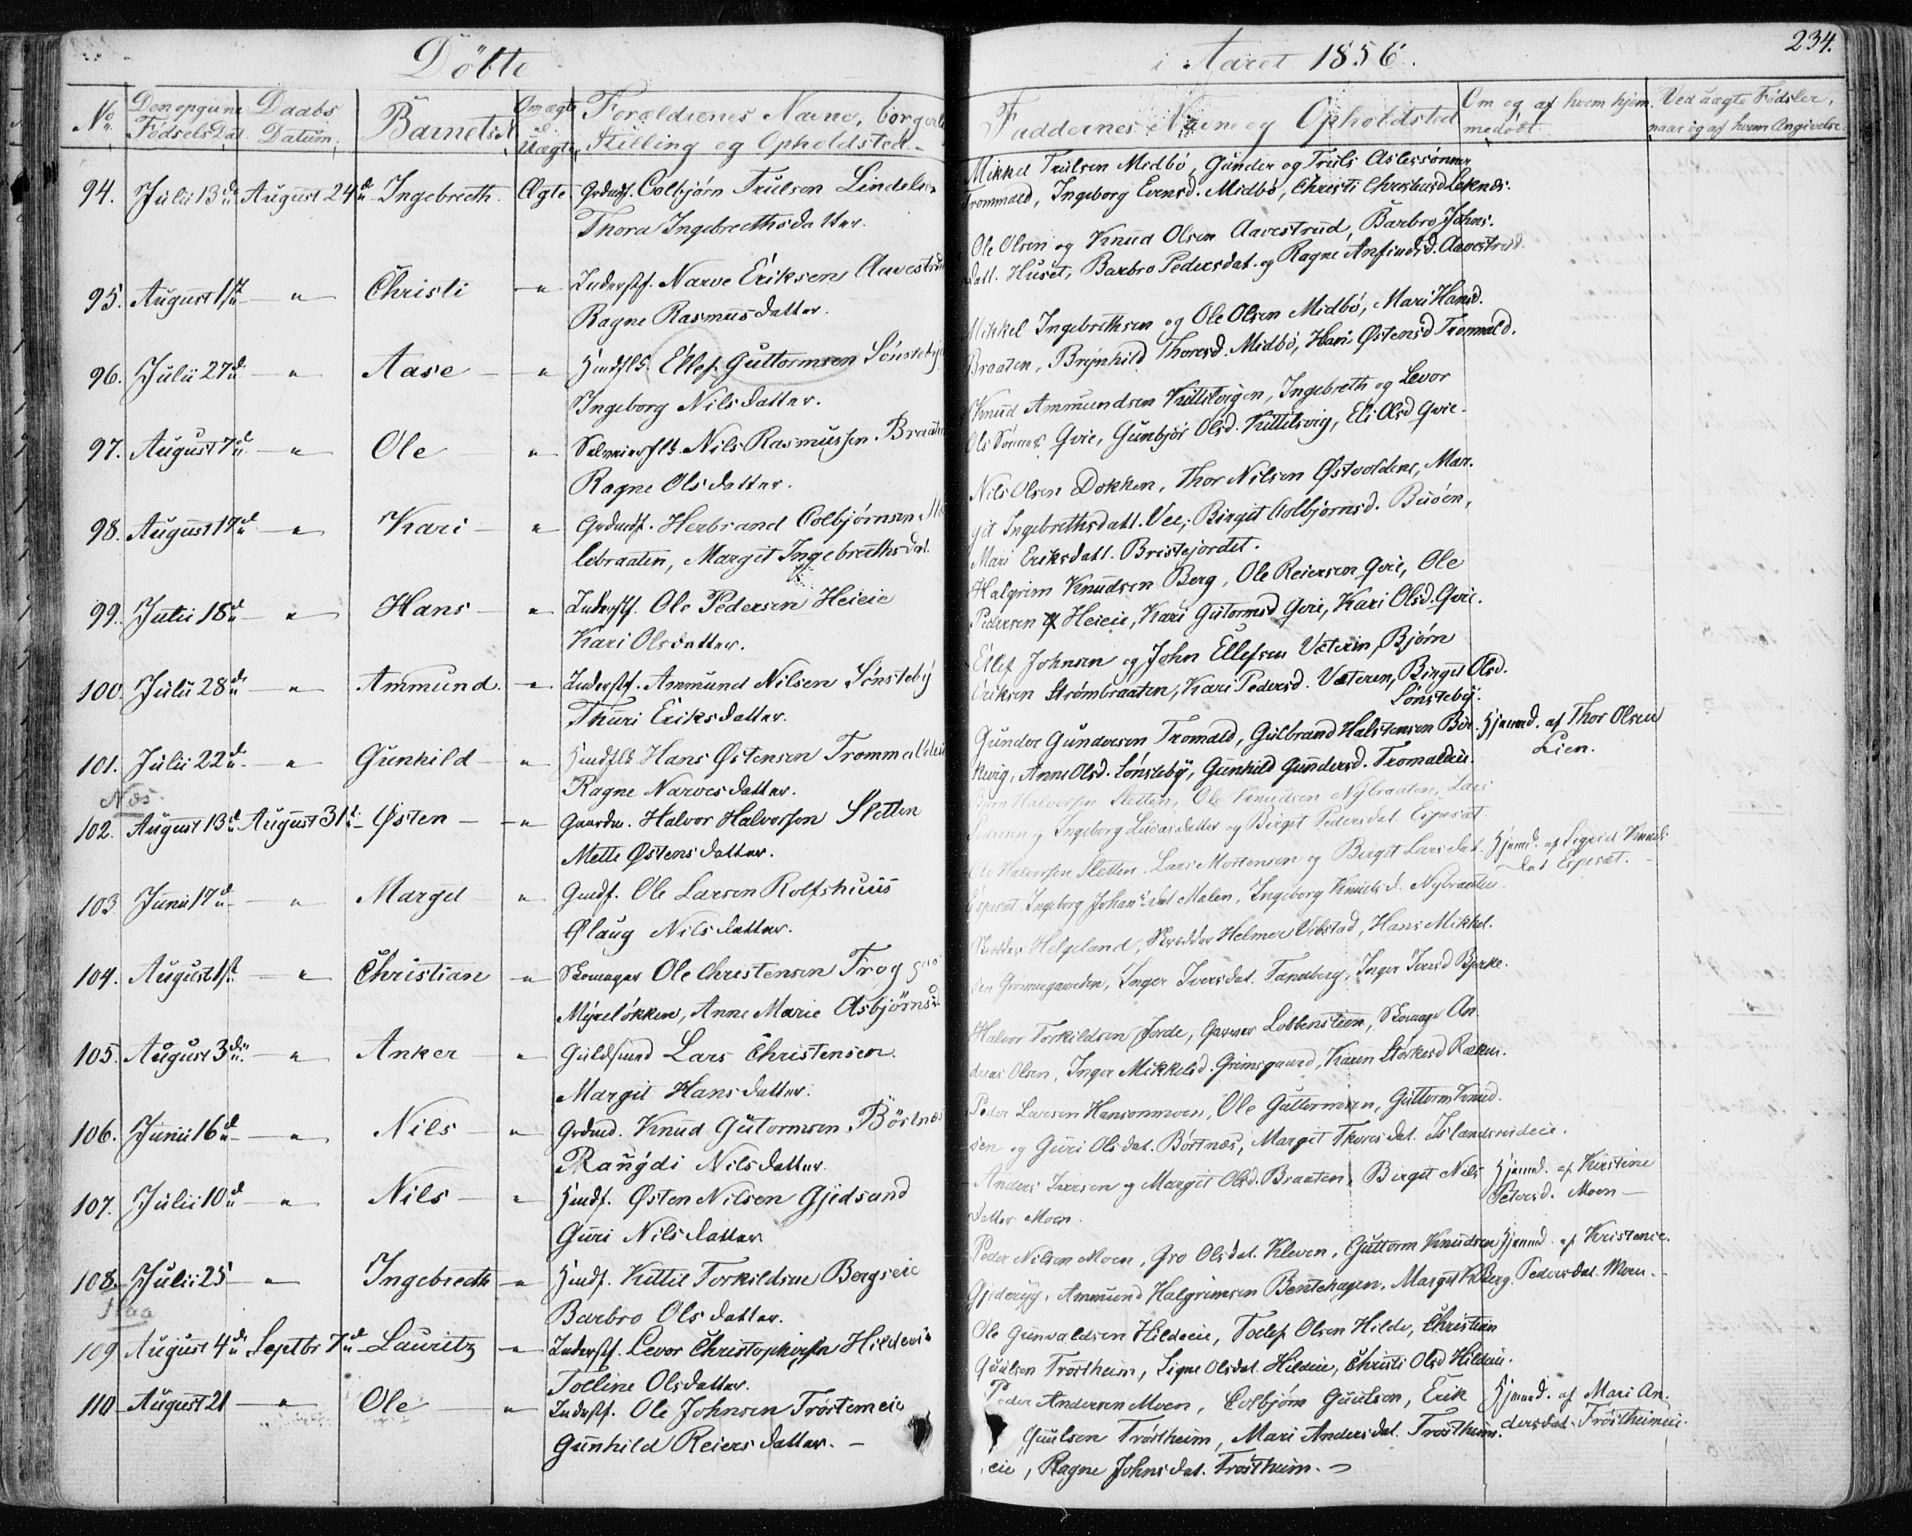 Döbte i Aaret 1856. 234.
No. Den opgivne Fødsels Dat. Daabs Datum. Barnets Om ægte el. Uægte Forældrenes Navne, borgerl. Stilling og Opholdsted. Faddernes Navne og Opholdsted Om og af hvem hjemmedøbt. Ved uægte Fødsler, naar og af hvem Angivelse
94. Julii 13de August 24de Ingebreth. Ægte. Grdmdf. Colbjørn Trulsen Lindel
Thora Ingebrethsdatter.
Mikkel Trulsen Midbø, Gunder og Truls Aslessønner
Trommald, Ingeborg Evensd. Midbø, Christi
95. August 1ste " Christi " Inderstf. Narve Eriksen Aavestrud
Ragne Rasmusdatter.
Ole Olsen og Knud Olsen Aavestrud, Barbro Johns.
datt. Huset, Barbro Pedersdat. og Ragne Anfindsd. Aavestrud.
96. Julii 27de " Aase " Huusflk. Ellef Guttormsen Sønsteby
Ingeborg Nilsdatter.
Mikkel Ingebrethsen og Ole Olsen Midbø, Mari Hansd.
Braaten, Brynhild Thoresd. Midbø, Hari Østensd Trommald.
97. August 7de " Ole " Nils Rasmussen Braaten
Ragne Olsdatter.
Knud Ammundsen Kittilsvigen, Ingebreth og Levor
Ols Sønner Gvie, Gunbjør Olsd. Kittilsvig, Eli Olsd Gvie.
98. August 17de " Kari " Grdmdf. Herbrand Colbjørnsen
lebraaten, Margit Ingebrethsdat.
Nils Olsen Dokken, Thor Nilsen Østvoldene, Mar-
git Ingebrethsdatt. Vee, Birgit Colbjørnsd. Buøen,
Mari Eriksdatt. Bristejordet.
99. Julii 18de " Hans " Inderstf. Ole Pedersen Heieie
Kari Olsdatter.
Halgrim Knudsen Berg, Ole Reiersen Gvie, Ole
Pedersen Heieie, Kari Gutormsd Gvie, Kari Olsd. Gvie.
100. Julii 28de " Ammund. " Inderstf. Ammund Nilsen Sønsteby
Thuri Eriksdatter.
Ellef Johnsen og John Ellefsen Væteren, Bjørn
Eriksen Strømbraaten, Kari Pedersd. Væteren, Birgit Olsd.
Sønsteby.
101. Julii 22de " Gunhild " Huusflk Hans Østensen Trommald
Ragne Narvesdatter.
Gunder Gundersen Tromald, Gulbrand Halstensen Bør-
kevig, Anne Olsd. Sønsteby, Gunhild Gundersd. Tromald
Hjemd. af Thor Olsen
Lien.
Næs.
102. August 13de August 31te Østen " Gaardm. Halvor Halvorsen Sletten
Mette Østensdatter.
Bjørn Halvorsen Sletten, Ole Knudsen Nybraaten, Lars
Pedersen og Ingeborg Larsdatter og Birgit Pedersdat. Espesæt.
103. Junii 17de " Margit " Gmdf. Ole Larsen Rolfshuus
Ølaug Nilsdatter.
Ole Halvorsen Sletten, Lars Mortensen og Birgit Larsdat.
Espesæt, Ingeborg Johansdat Malen, Ingeborg Knudsd. Nybraaten
Hjemd. af Sigrid Knuds-
dat Espesæt.
104. August 1ste " Christian " Skomager Ole Christensen Frog
Myreløkken, Anne Marie Asbjørnsd
Helgeland, Skrædder Helmer Vibstad, Hans Mikkel-
sen Inger Iversdat. Tandberg, Inger Iversd Bjerke.
105. August 3die " Anker " Guldsmed Lars Christensen.
Margit Hansdatter.
Halvor Torkildsen Jorde, Garver Lobbenstein, Skomager An-
dreas Olsen, Inger Mikkelsd. Grimsgaard, Karen
106. Junii 16de " Nils " Grdmd. Knud Gutormsen Børtnæs
Rangdi Nilsdatter.
Peder Larsen Hansonmoen, Ole Guttormsen, Guttorm Knud-
sen og Guri Olsdat. Børtnæs, Margit Thoresdat.
107. Julii 10de " Nils " Huusf. Østen Nilsen Gjedsund
Guri Nilsdatter
Anders Iversen og Margit Olsd. Braaten, Birget Nils
datter Moen.
Hjemd. af Kirstine
Petersd. Moen
108. Julii 25 " Ingebreth " Huusf. Kittil Torkildsen Bergseie
Barbro Olsdatter.
Peder Nilsen Moen, Gro Olsdat. Kleven, Guttorm Knudsen
Ammund Halgrimsen Bentehagen, Margit Berg.
Hjemd. af Kristence
Pedersdat. Moen.
Flaa
109 August 4de Septbr 7de Lauritz " Inderstf. Levor Christophersen Hildeeie
Tolline Olsdatter.
Ole Gunvaldsen Hildeeie, Tollef Olsen Hilde, Christian
Guulsen Trøstheim, Signe Olsdat. Hildeeie, Christi Olsd Hildeeie.
110 August 21 " Ole " Inderstf. Ole Johnsen Trøstemeie
Gunhild Reiersdatter.
Peder Andersen Moen, Colbjørn Guulsen, Erik
Guulsen Trøstheim, Mari Andersdat. Trøstheim
eie, Ragne Johnsdat. Trøstheim.
Hjemd. af Mari An-
dersdat. Trøstheimeie.